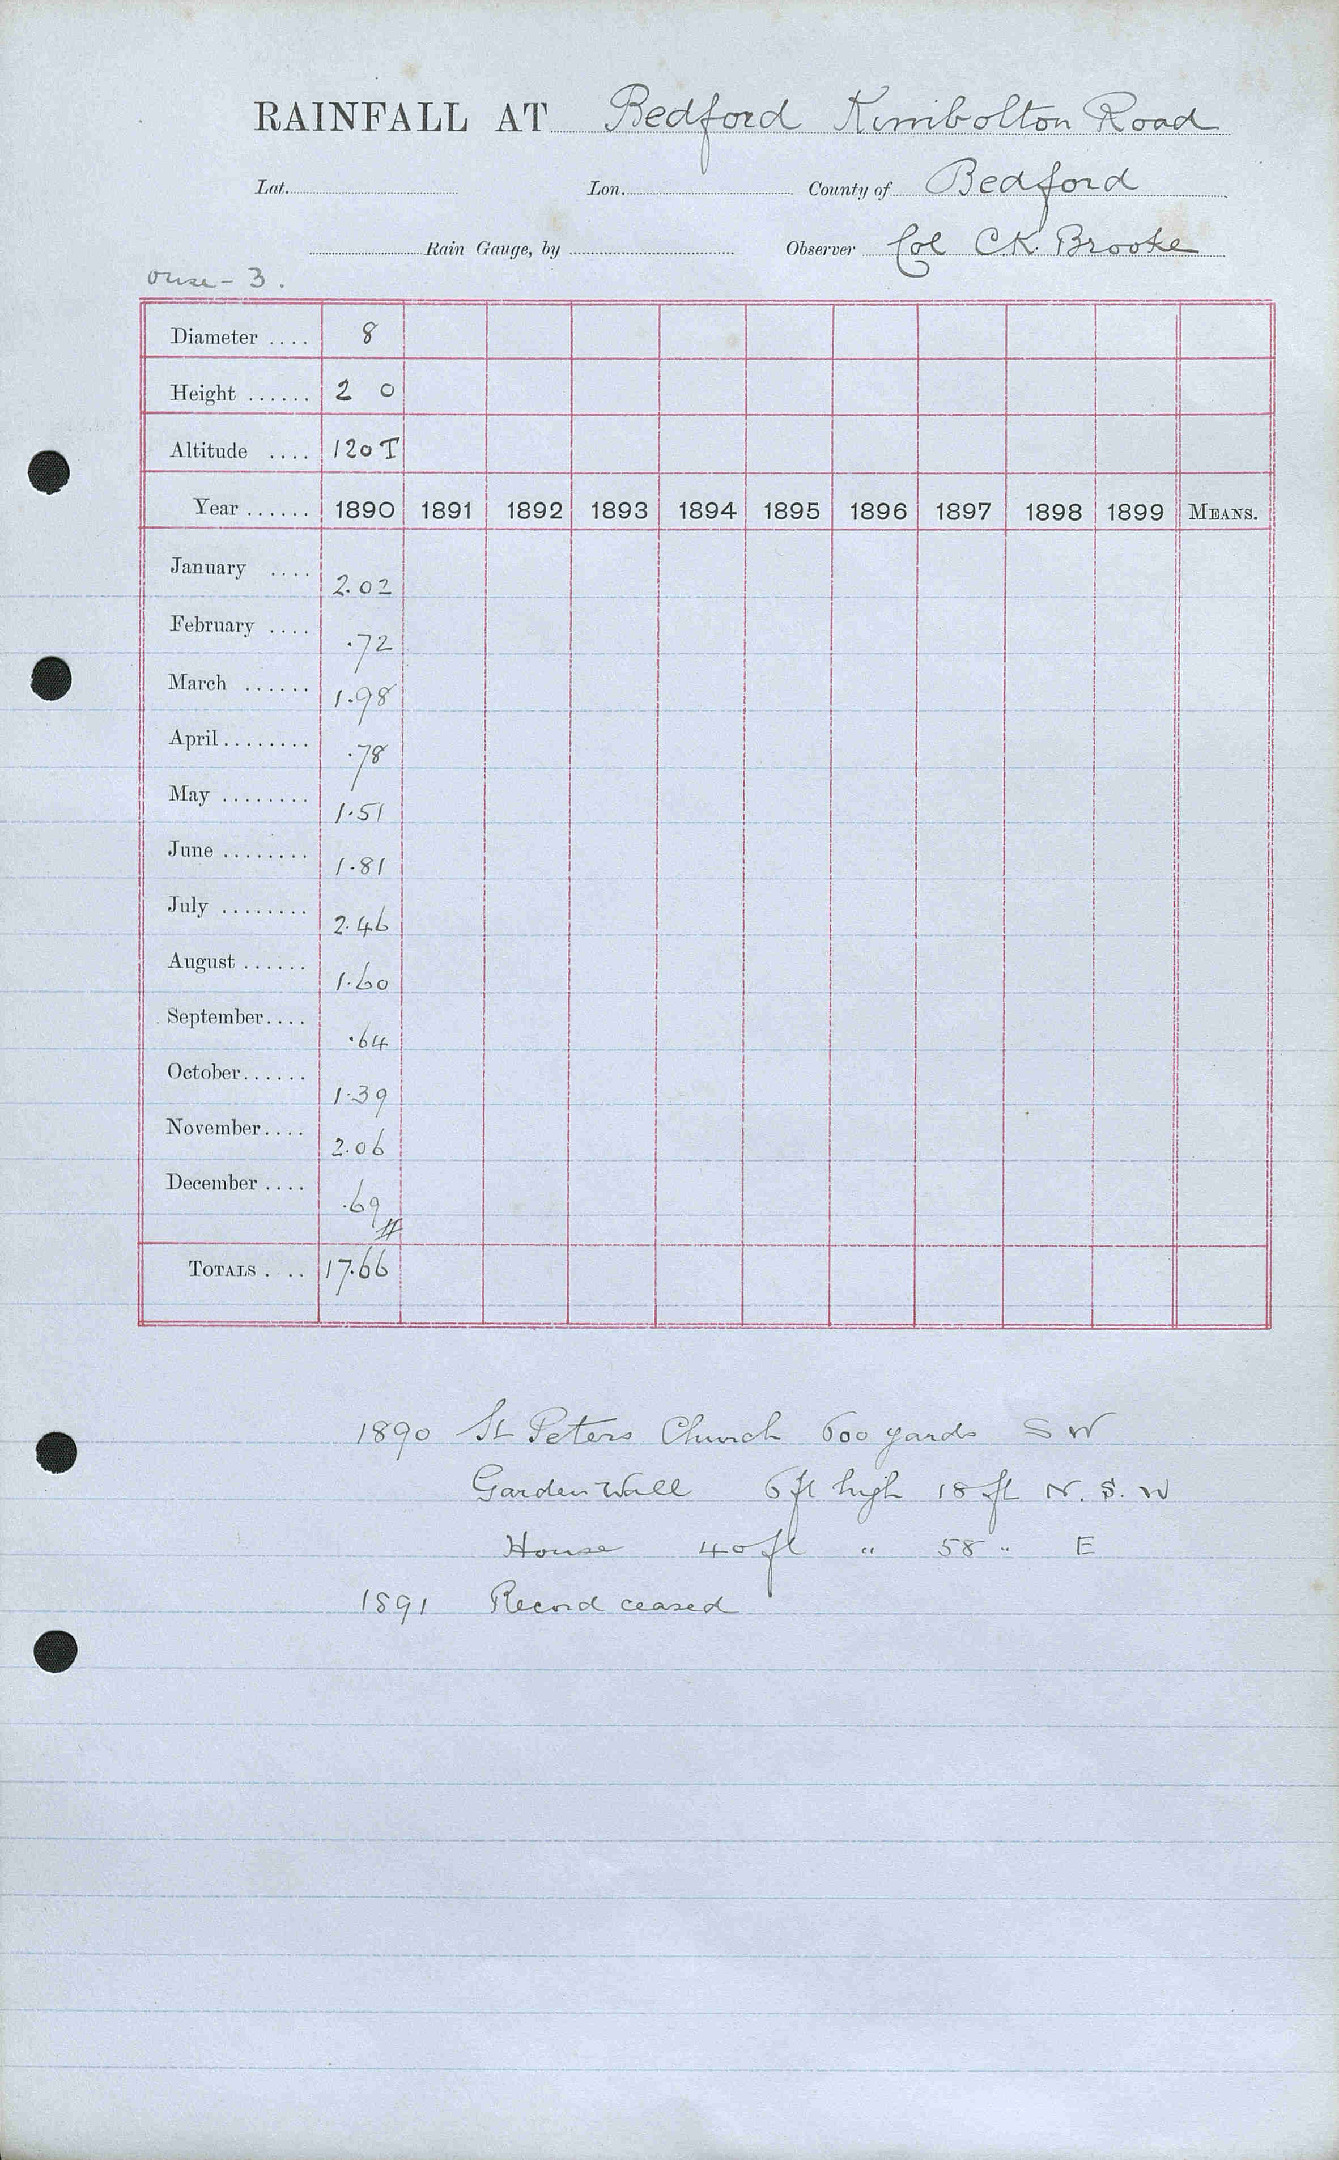 RAINFALL AT Bedford Kimbolton Road
Lat. Lon. County of Bedford
Rain Gauge, by Observer Col C.K. Brooke
Ouse - 3.
Diameter .... 8
Height ...... 2 0
Altitude .... 120 T
Year ...... 1890 1891 1892 1893 1894 1895 1896 1897 1898 1899 MEANS.
January .... 2.02
February .... .72
March ...... 1.98
April ........ .78
May ........ 1.51
June ........ 1.81
July ........ 2.46
August ...... 1.60
September.... .64
October...... 1.39
November.... 2.06
December .... .69
TOTALS . .. 17.66
1890 St Peters Church 600 yards S W
Garden Wall 6 ft high 18 ft N. S. W
House 40 ft " 58 " E
1891 Record ceased